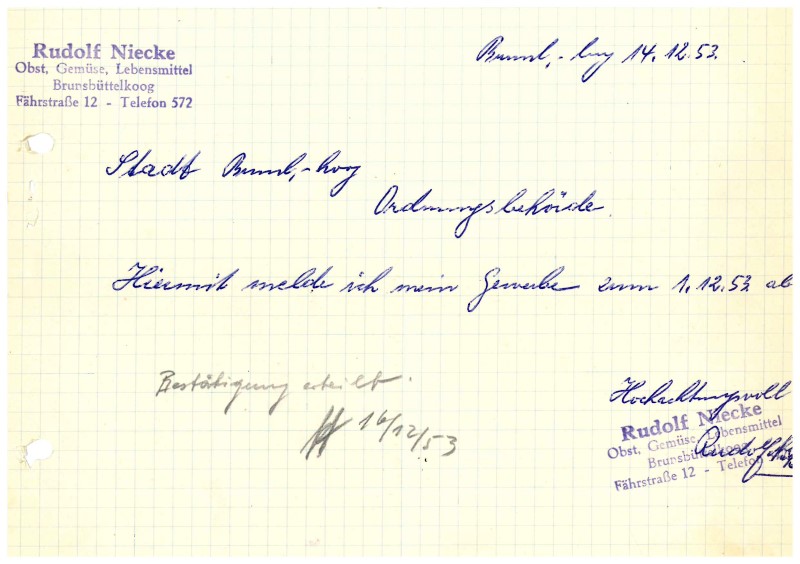 Rudolf Niecke
Obst, Gemüse, Lebensmittel
Brunsbüttelkoog
Fährstraße 12 - Telefon 572
14.12.53.
Stadt Brunsb.-koog
Ordnungsbehörde.
Hiermit melde ich mein Gewerbe zum 1.12.53 ab
Bestätigung erteilt.
16/12/53
Hochachtungsvoll
Rudolf Niecke
Obst, Gemüse, Lebensmittel
Brunsbüttelkoog
Rudolf
Fährstraße 12 - Telefon